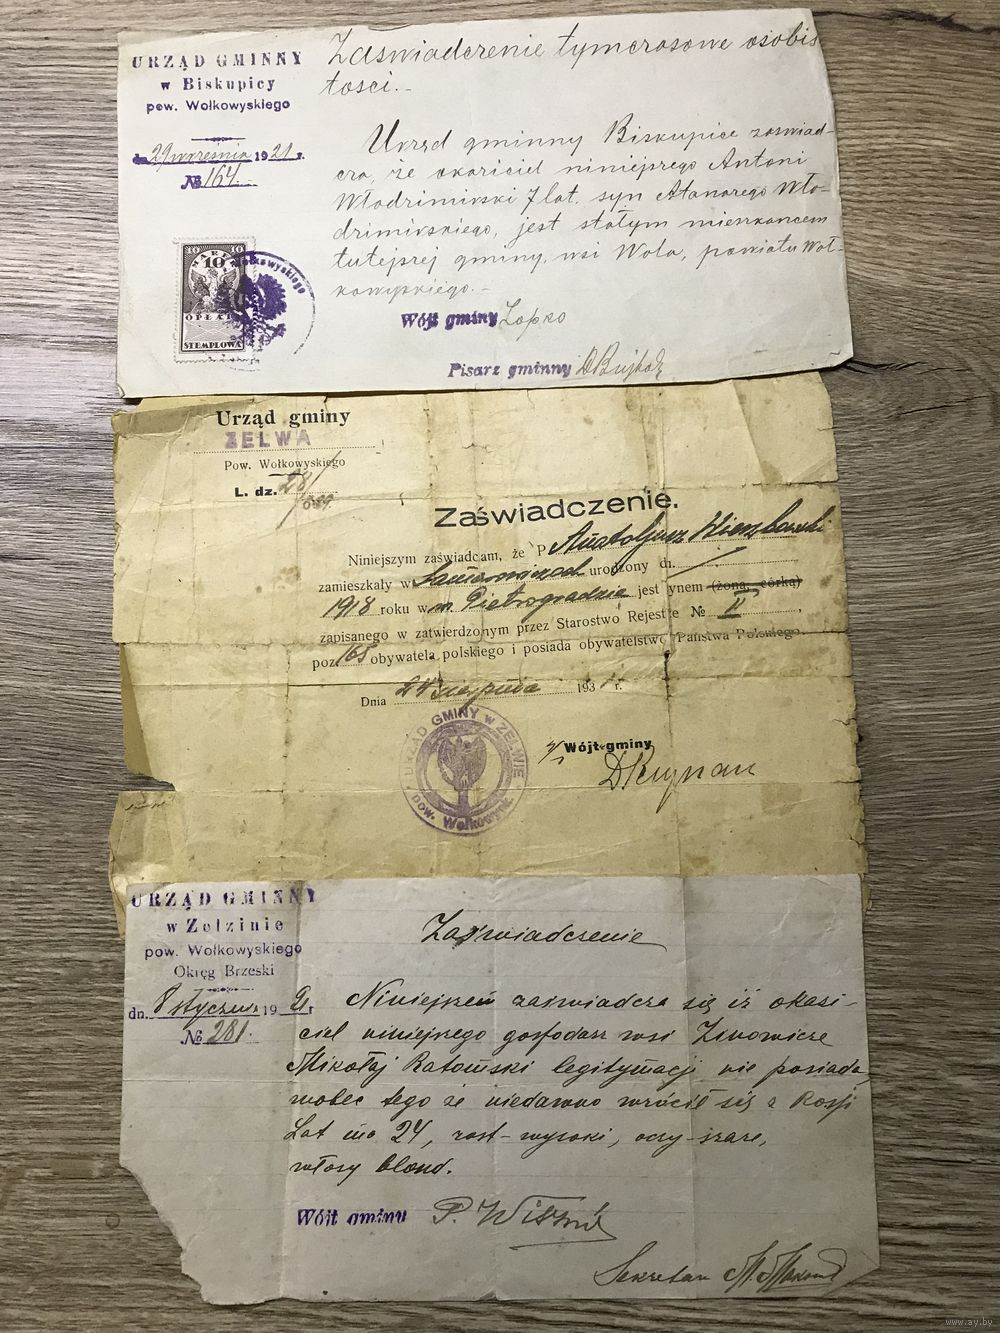 URZĄD GMINNY
w Biskupicy
pow. Wołkowyskiego
dn. 29 września 1921 r.
№ 164.
Zaświadczenie tymczasowe osobis
tości.-
Urząd gminny Biskupice zaświad-
cza, że okaziciel niniejszego Antoni
Włodzimirski 7 lat, syn Atanazego Wło-
dzimirskiego, jest stałym mieszkańcem
tutejszej gminy, wsi Wola, powiatu Woł-
kowyskiego.-
10 10
10
OPŁATA
STEMPLOWA
Wołkowyskiego
Wójt gminy Łopko
Pisarz gminny
Urząd gminy
ZELWA
Pow. Wołkowyskiego
L. dz. 28/
Zaświadczenie.
Niniejszym zaświadcam, że P Anatoljusz
zamieszkały w urodzony dn.
1918 roku w m. Pietrogradzie jest synem (żoną, córką)
zapisanego w zatwierdzonym przez Starostwo Rejestze № II
poz 165 obywatela polskiego i posiada obywatelstwo Państwa Polskiego.
Dnia 24 sierpnia 1931 r.
URZĄD GMINY w ZELWIE
pow. Wołkowysk.
Wójt gminy
URZĄD GMINNY
w Zelzinie
pow. Wołkowyskiego
Okręg Brzeski
dn. 8 styczeń 1921 r
№ 281.
Zaświadczenie
Niniejszem zaświadcza się iż okazi-
ciel niniejszego gospodarz wsi Zinowicze
Mikołaj Ratomski legitymacji nie posiada,
wobec tego że niedawno wrócił się z Rosji
Lat ma 24, rost-wysoki, oczy-szare,
włosy blond.
Wójt gminy P.
Sekretarz
www.ay.by